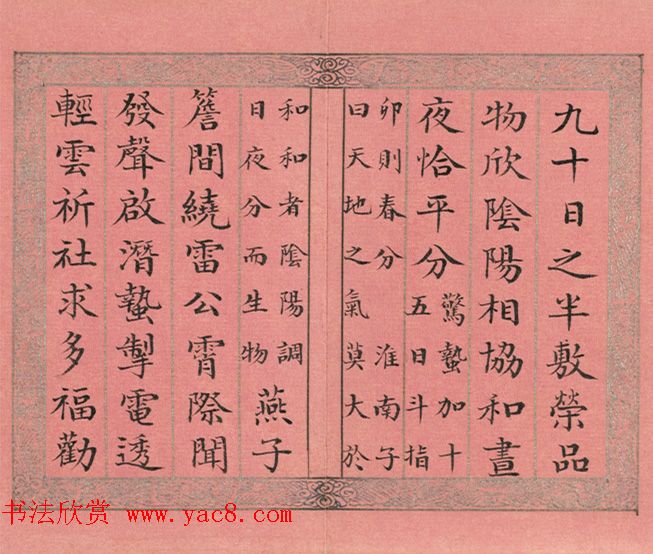 九十日之半敷榮品
物欣陰陽相協和晝
夜恰平分
驚蟄加十
五日斗指
卯則春分 淮南子
曰天地之氣莫大於
和和者陰陽調
日夜分而生物
燕子
簷間繞雷公霄際聞
發聲啟潛蟄掣電透
輕雲祈社求多福勸
书法欣赏 www.yac8.com